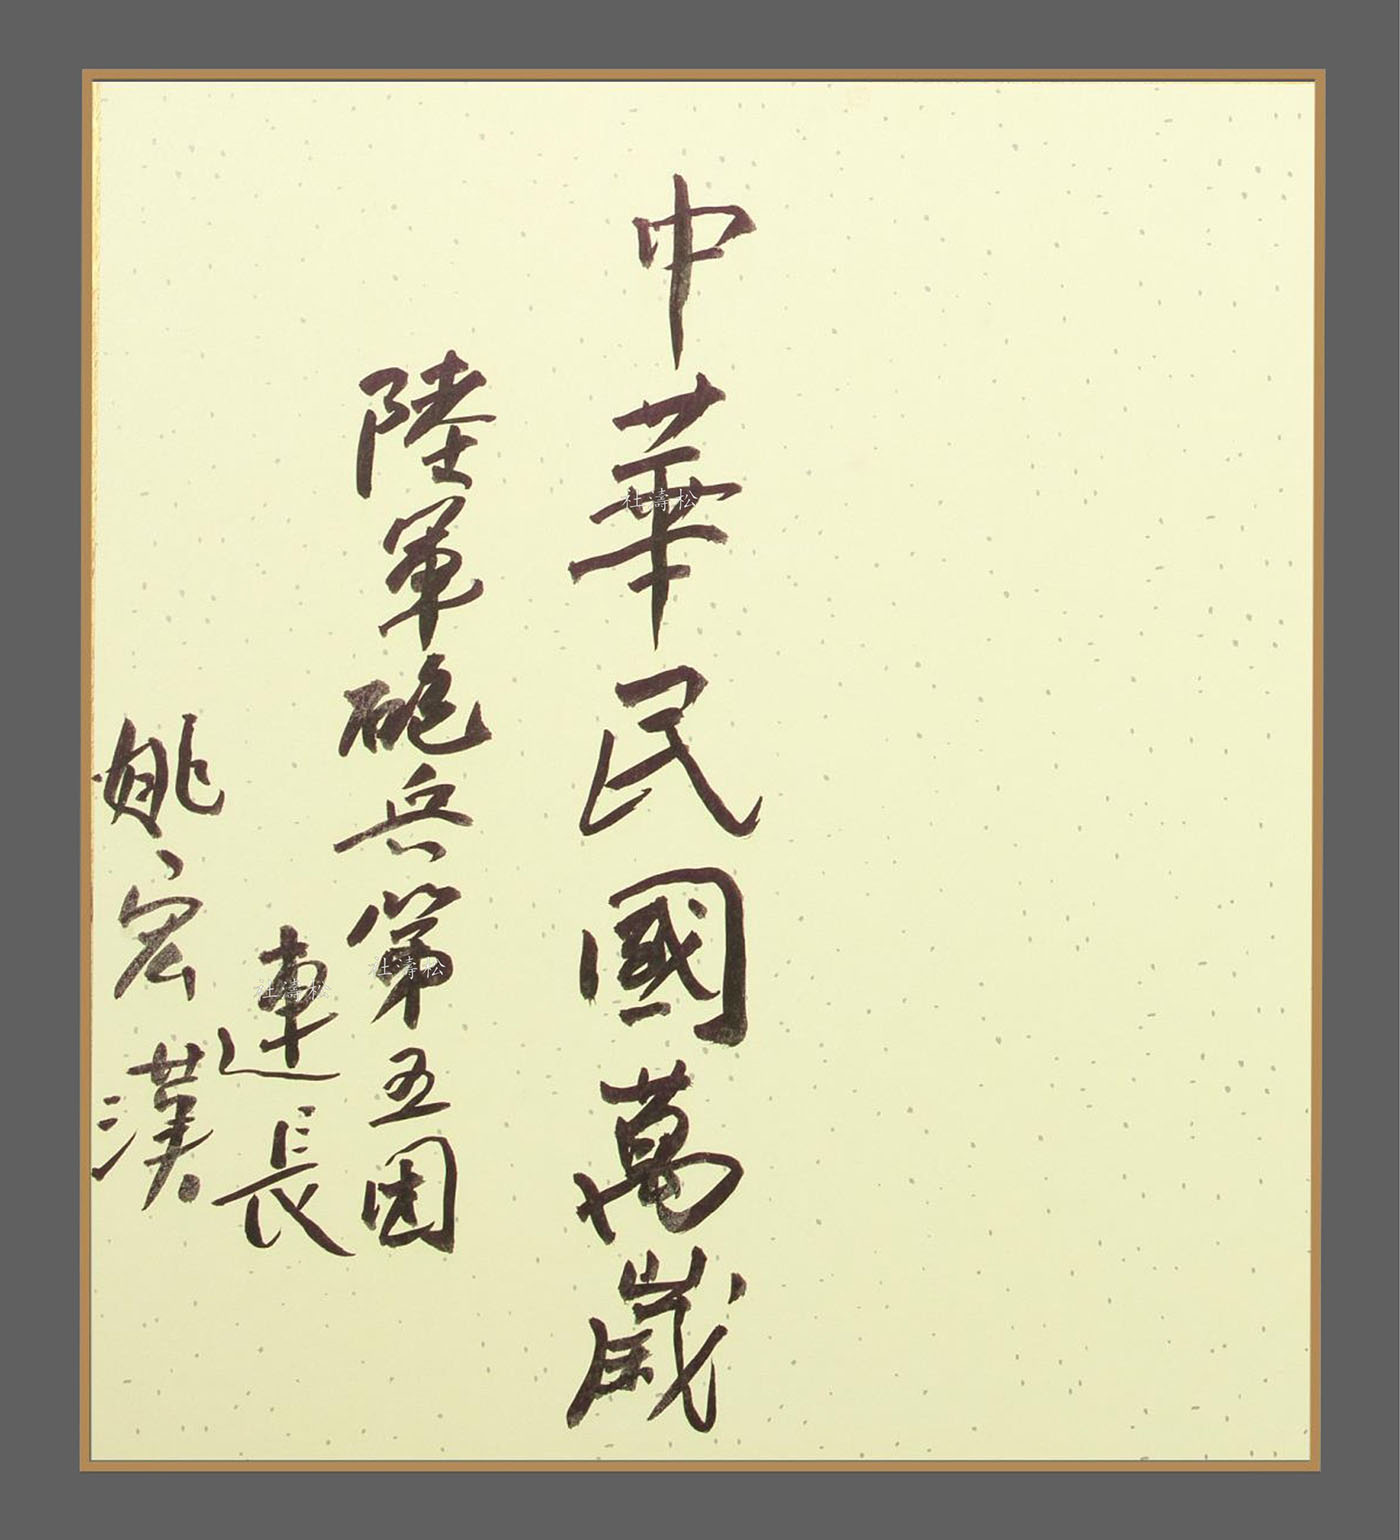 中華民國萬歲
陸軍砲兵第五团
連長
姚宏漢
杜濤松
杜濤松
杜濤松